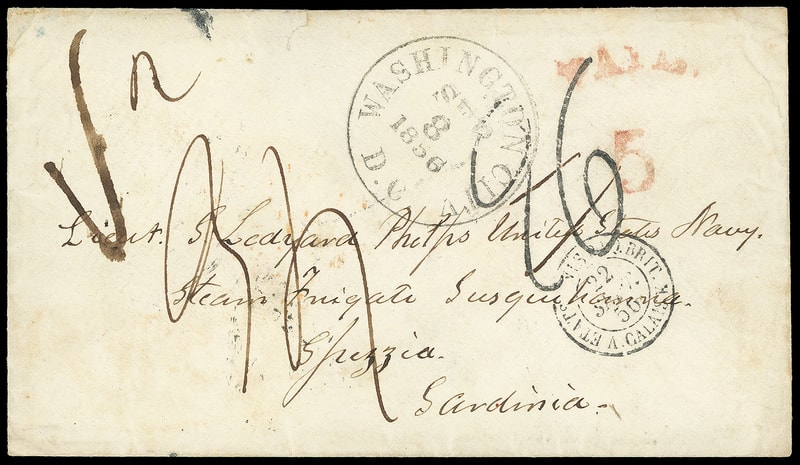 WASHINGTON CITY D.C.
SEP
8
1856
PAID
5
16
Lieut. S Ledyard Phelps United States Navy.
Steam Frigate Susquehanna.
Spezzia.
Sardinia.
22
SEPT.
56
ETATS-UNIS
BRIT. A. CALAIS